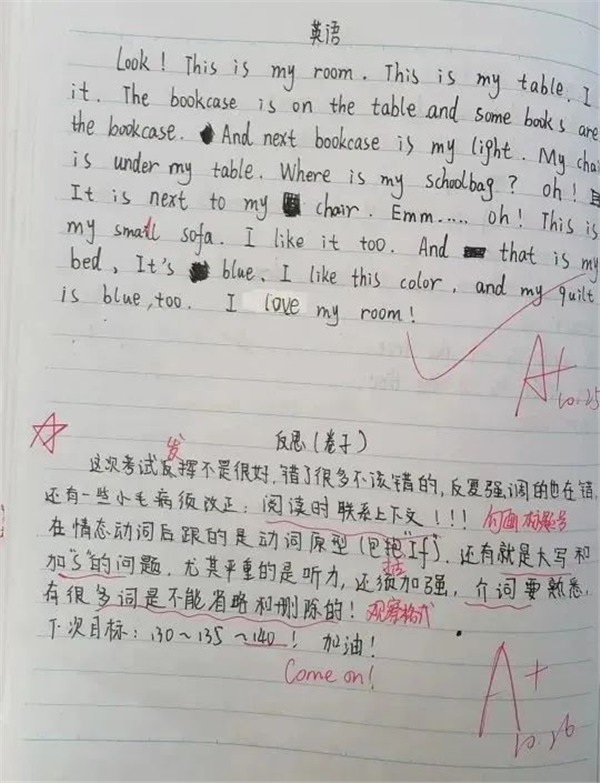 英语
Look! This is my room. This is my table. I
it. The bookcase is on the table and some books are
the bookcase. And next bookcase is my light. My chai
is under my table. Where is my schoolbag? oh!
It is next to my chair. Emm..... oh! This is
my small sofa. I like it too. And that is my
bed, It's blue. I like this color, and my quilt
is blue, too. I love my room!
A+
10.25
反思(卷子)
发
这次考试反挥不是很好,错了很多不该错的,反复强调的也在错,
还有一些小毛病须改正:阅读时联系上下文!!!
在情态动词后跟的是动词原型(包括"If").还有就是大写和
加"s"的问题.尤其严重的是听力,还须加强,介词要熟悉,
有很多词是不能省略和删除的!观察格式
下次目标:130~135~140!加油!
Come on!
A+
10.26